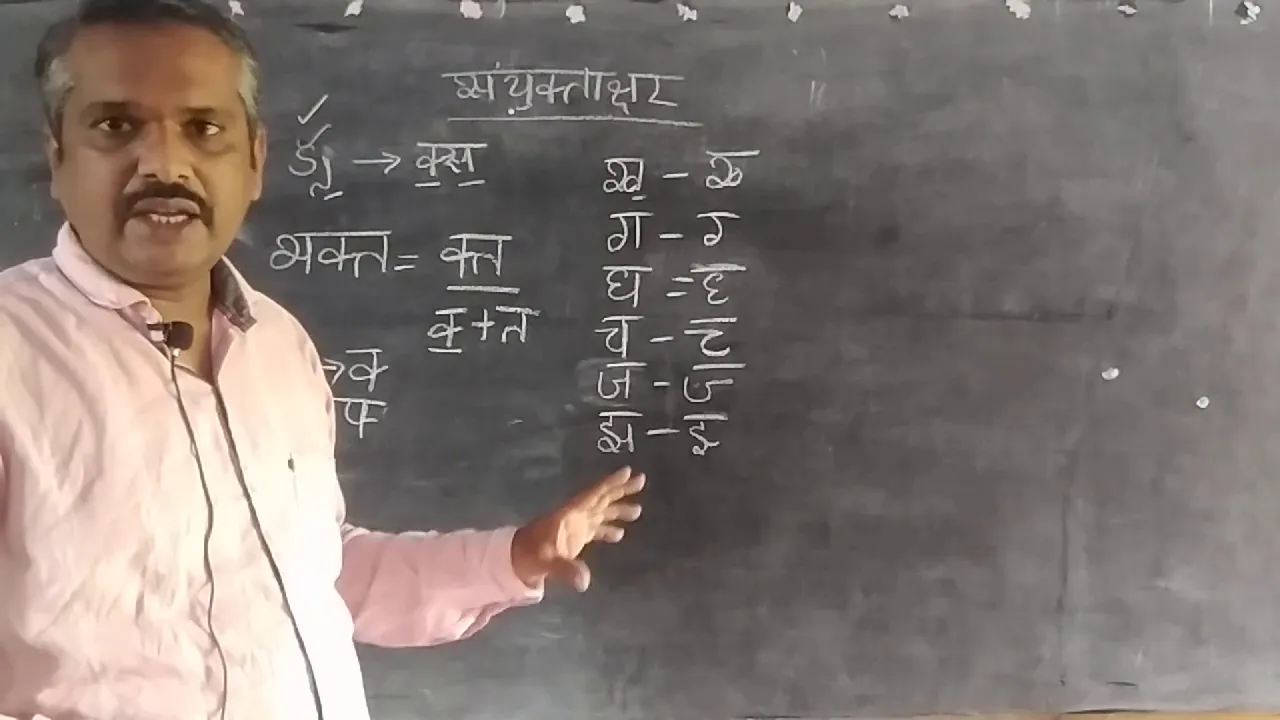 संयुक्ताक्षर
→ क्स
भक्त = क्त
क् + त
→ क
फ
ख - ख्
ग - ग्
घ = घ्
च - च्
ज - ज्
झ - झ्